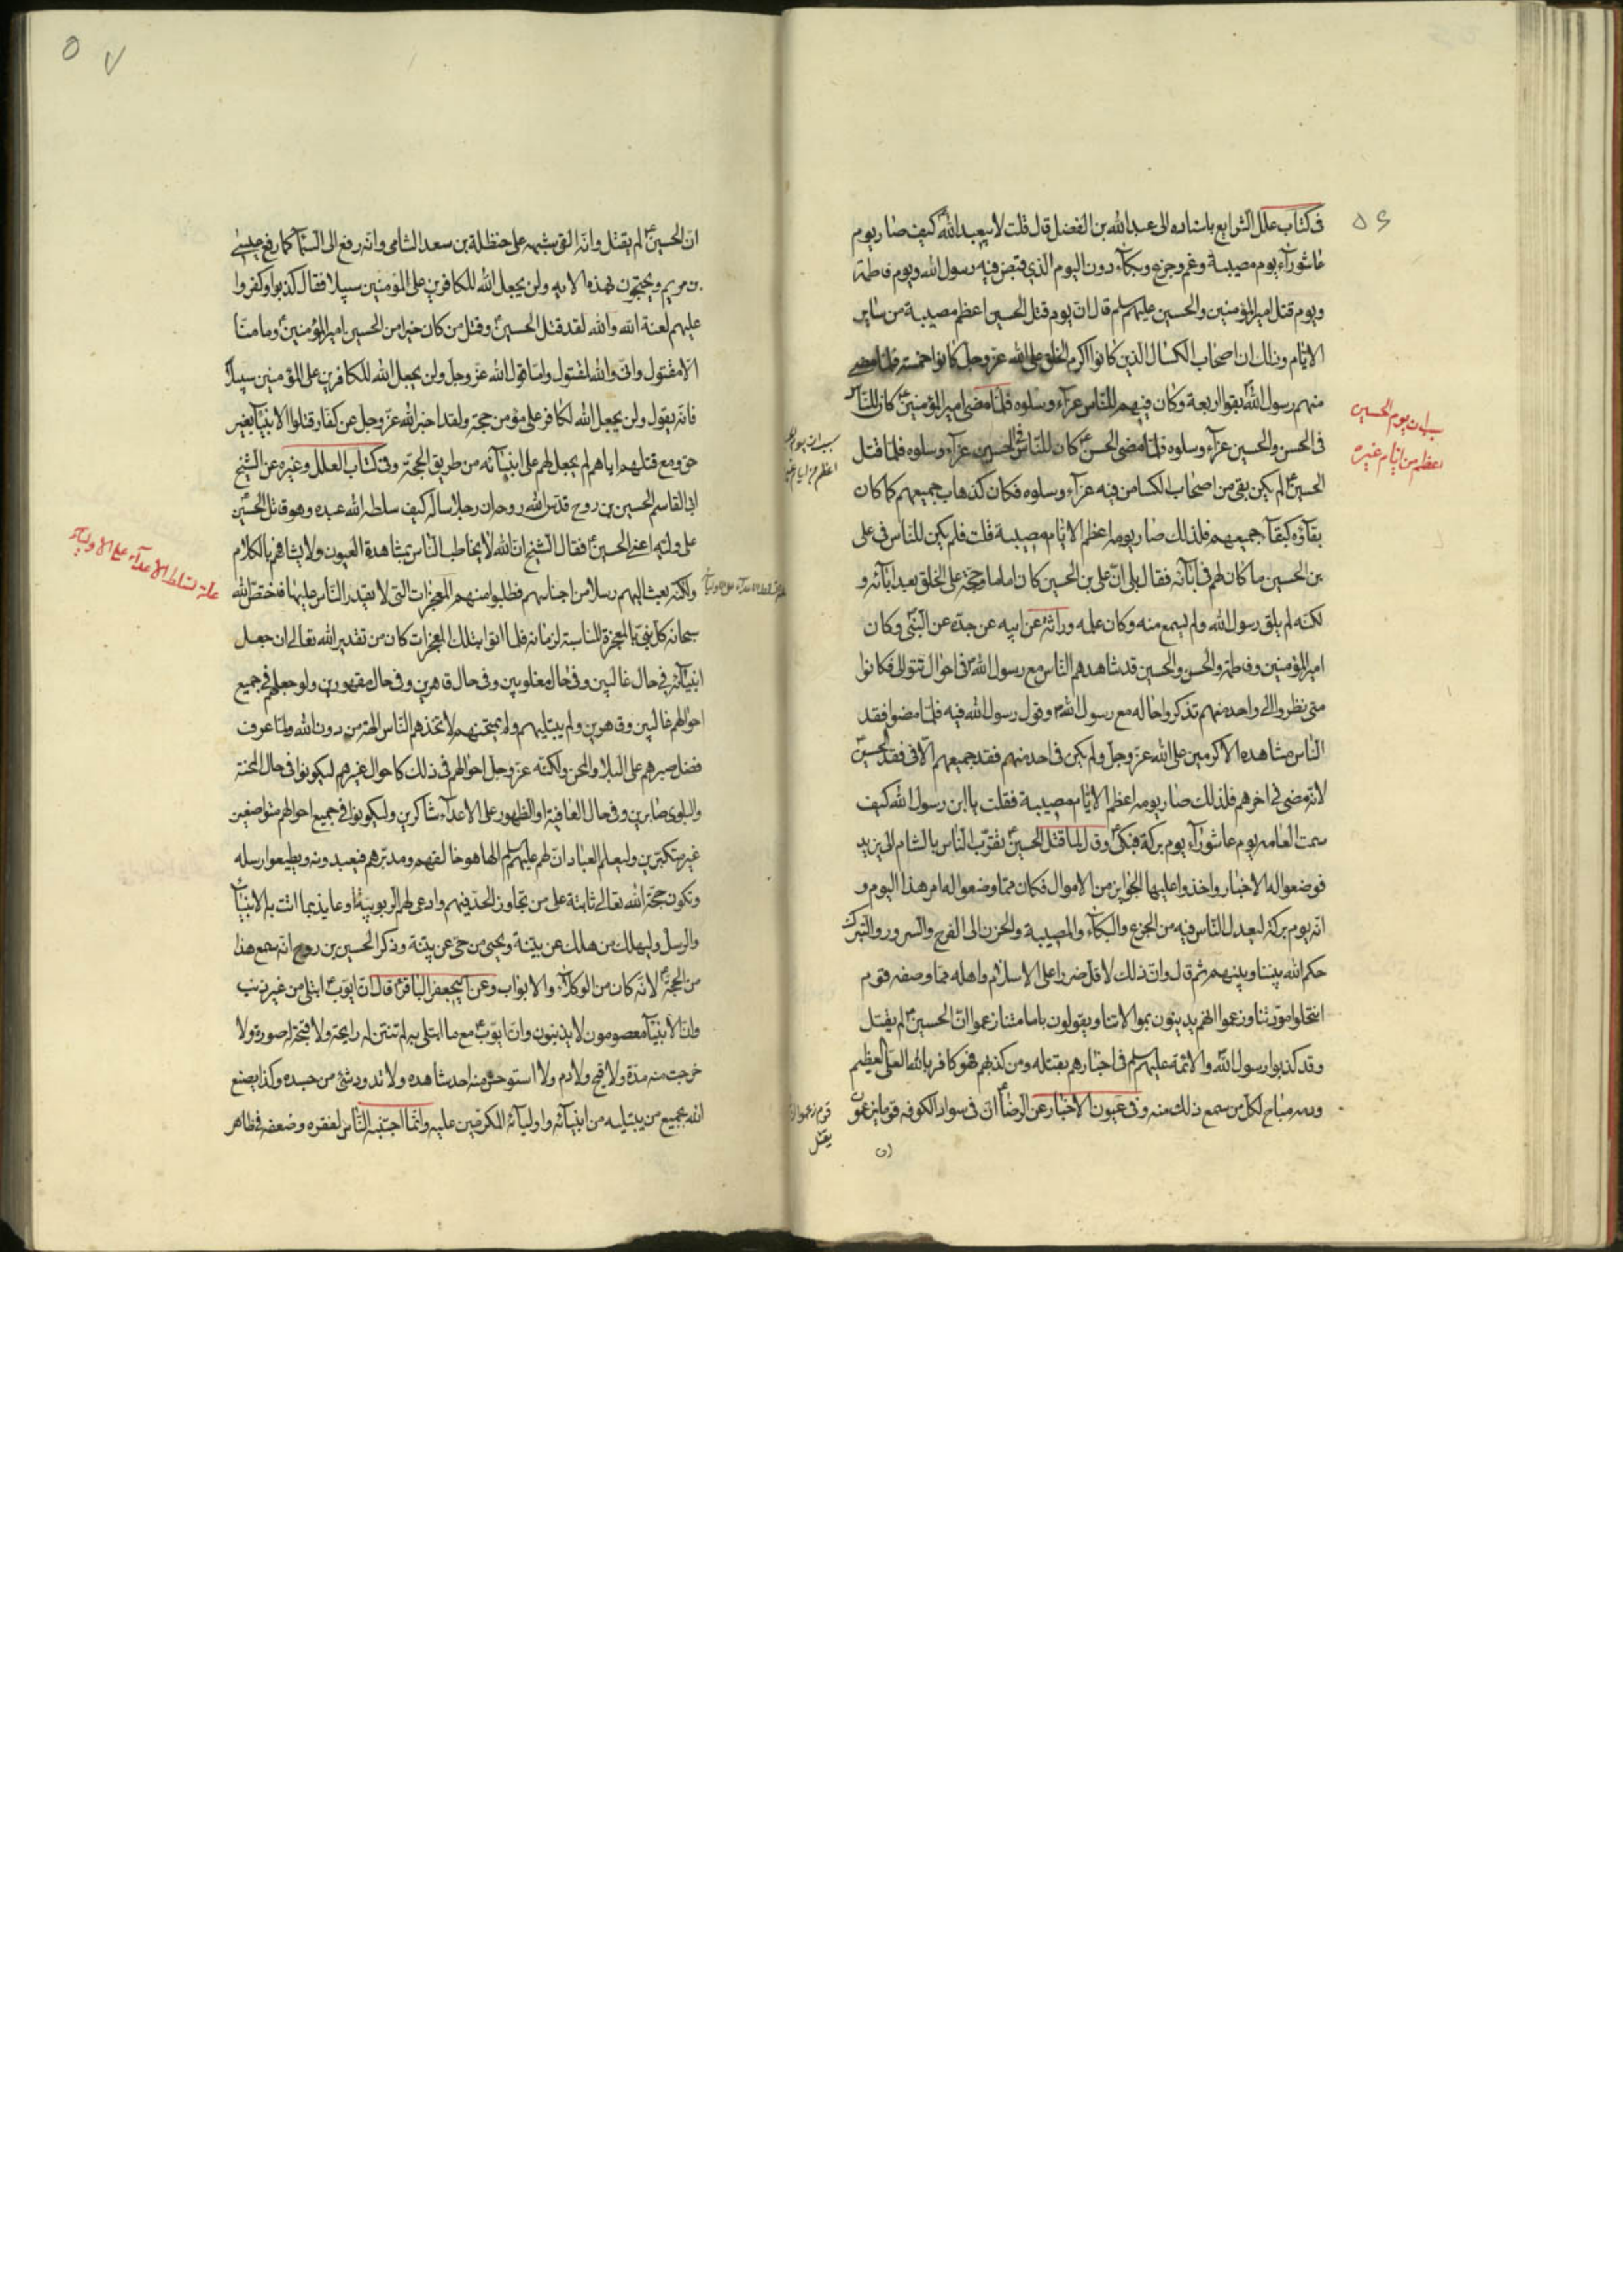 ٥٦
في كتاب علل الشرايع باسناده الى عبدالله بن الفضل قال قلت لابيعبدالله ع كيف صار يوم
عاشورآء يوم مصيبة وغم وجزع وبكآء دون اليوم الذي قبض فيه رسول الله ويوم فاطمة
ويوم قتل اميرالمؤمنين والحسين عليهم سلم قال ان يوم قتل الحسين اعظم مصيبة من ساير
الايام وذلك ان اصحاب الكسا الذين كانوا اكرم الخلق على الله عز وجل كانوا خمسة فلما مضى
منهم رسول الله بقوا اربعة وكان فيهم للناس عزآء وسلوه فلما مضى اميرالمؤمنين ع كان للناس
في الحسن والحسين عزآء وسلوه فلما مضى الحسن ع كان للناس في الحسين عزآء وسلوه فلما قتل
الحسين ع لم يكن بقى من اصحاب الكسا من فيه عزآء وسلوه فكان كذهاب جميعهم كما كان
بقآؤه كبقآء جميعهم فلذلك صار يومه اعظم الايام مصيبة قلت فلم يكن للناس في على
بن الحسين ما كان لهم في آبآئه فقال بلى ان على بن الحسين كان اماما وحجة على الخلق بعد ابآئه و
لكنه لم يلق رسول الله ولم يسمع منه وكان علمه وراثة عن ابيه عن جده عن النبي وكان
اميرالمؤمنين وفاطمة والحسن والحسين قد شاهدهم الناس مع رسول الله ص في احوال تتوالى فكانوا
متى نظروا الى واحد منهم تذكروا حاله مع رسول الله ص وقول رسول الله فيه فلما مضوا فقد
الناس مشاهده الاكرمين على الله عز وجل ولم يكن في احد منهم فقد جميعهم الا في فقد الحسين ع
لانه مضى في اخرهم فلذلك صار يومه اعظم الايام مصيبة فقلت يا ابن رسول الله كيف
سمت العامه يوم عاشورآء يوم بركة فبكى ع وقال لما قتل الحسين ع تقرب الناس بالشام الى يزيد
فوضعوا له الاخبار واخذوا عليها الجوايز من الاموال فكان مما وضعوا له امر هذا اليوم و
انه يوم بركة ليعدل الناس فيه من الجزع والبكآء والمصيبة والحزن الى الفرح والسرور والتبرك
حكم الله بيننا وبينهم ثم قال وان ذلك لاقل ضررا على الاسلام واهله مما وصفه قوم
انتحلوا مودتنا وزعموا انهم يدينون بموالاتنا ويقولون بامامتنا زعموا ان الحسين ع لم يقتل
وقد كذبوا رسول الله والائمة عليهم سلم في اخبارهم بقتله ومن كذبهم فهو كافر بالله العلي العظيم
ودمه مباح لكل من سمع ذلك منه وفي عيون الاخبار عن الرضا ع ان في سواد الكوفه قوما يزعمون
ان
ان يوم الحسين
اعظم من ايام غيره
قوم زعموا
يقتل
٥٧
ان الحسين ع لم يقتل وانه القى شبهه على حنظلة بن سعد الشامى وانه رفع الى السمآء كما رفع عيسى
بن مريم ويحتجون بهذه الايه ولن يجعل الله للكافرين على المؤمنين سبيلا فقال كذبوا وكفروا
عليهم لعنة الله والله لقد قتل الحسين ع وقتل من كان خيرا من الحسين اميرالمؤمنين ع وما منا
الا مقتول وانى والله لمقتول واما قول الله عز وجل ولن يجعل الله للكافرين على المؤمنين سبيلا
فانه يقول ولن يجعل الله لكافر على مؤمن حجة ولقد اخبر الله عز وجل عن كفار قتلوا الانبيآء بغير
حق ومع قتلهم اياهم لم يجعل لهم على انبيآئه من طريق الحجة وفي كتاب العلل وغيره عن الشيخ
ابى القاسم الحسين بن روح قدس الله روحه ان رجلا ساله كيف سلط الله عبده وهو قاتل الحسين
على وليه اعنى الحسين ع فقال الشيخ ان الله لا يخاطب الناس بمشاهدة العيون ولا يشافهم بالكلام
ولكنه بعث اليهم رسلا من اجناسهم فطلبوا منهم المعجزات التى لا يقدر الناس عليها فخص الله
سبحانه كل نبى بالمعجزة المناسبة لزمانه فلما اتوا بتلك المعجزات كان من تقدير الله تعالى ان جعل
انبيآئه في حال غالبين وفي حال مغلوبين وفي حال قاهرين وفي حال مقهورين ولو جعلهم في جميع
احوالهم غالبين وقاهرين ولم يبتليهم ولم يمتحنهم لاتخذهم الناس الهة من دون الله ولما عرف
فضل صبرهم على البلاء والمحن ولكنه عز وجل جعل احوالهم في ذلك كاحوال غيرهم ليكونوا في حال المحنة
والبلوى صابرين وفي حال العافية والظهور على الاعدآء شاكرين وليكونوا في جميع احوالهم متواضعين
غير متكبرين وليعلم العباد ان لهم عليهم سلم الها هو خالقهم ومدبرهم فيعبدونه ويطيعوا رسله
وتكون حجة الله تعالى ثابتة على من تجاوز الحد فيهم وادعى لهم الربوبية او عاند بما اتت به الانبيآء
والرسل وليهلك من هلك عن بينة ويحيى من حى عن بينة وذكر الحسين بن روح انه سمع هذا
من الحجة ع لانه كان من الوكلآء والابواب وعن ابيجعفر الباقر ع قال ان ايوب ع ابتلى من غير ذنب
وان الانبيآء معصومون لا يذنبون وان ايوب ع مع ما ابتلى به لم تنتن له رايحة ولا قبحت له صورة ولا
خرجت منه مدة ولا قيح ولا دم ولا استوحش منه احد شاهده ولا تدود شئ من جسده وكذا يصنع
الله بجميع من يبتليه من انبيآئه واوليآئه المكرمين عليه وانما اجتنبه الناس لفقره وضعفه في ظاهر
علة تسلط الاعدآء على الاوليآء